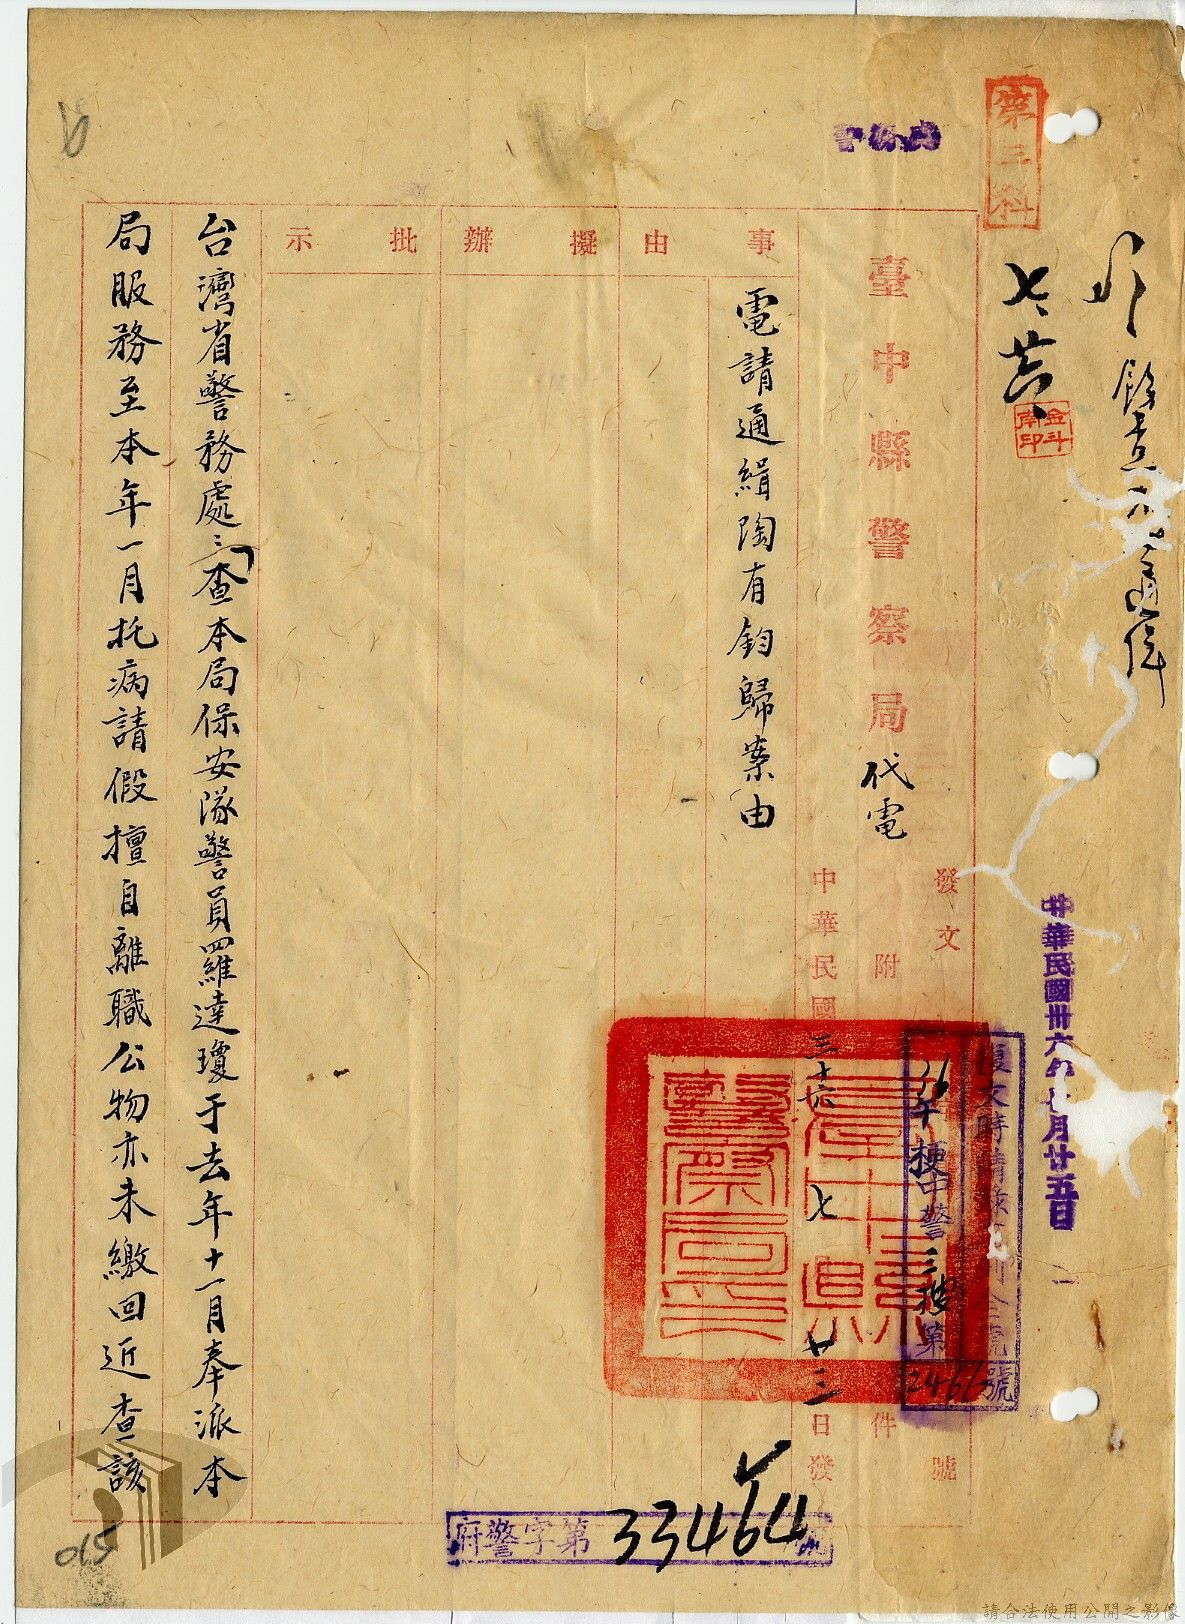 第三科
七、廿六、
金斗
南印
中華民國卅六年七月廿五日
臺中縣警察局代電
發文
號
附
件
復文時請
36午梗中警三
第2466號
中華民國三十六 七 廿三日發
事由
擬辦
批示
電請通緝陶有鈞歸案由
台灣省警務處:查本局保安隊警員羅達瓊于去年十一月奉派本
局服務至本年一月托病請假擅自離職公物亦未繳回近查該
府警字第33464號
015
請合法使用公開之影像